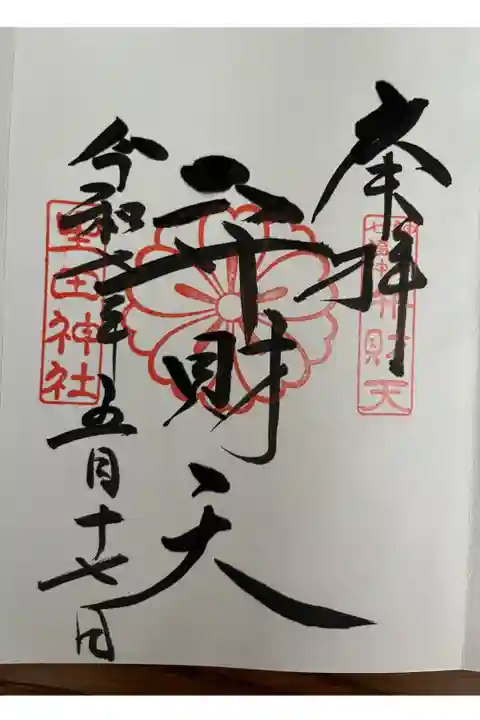 奉拝
神戸七福神
弁財天
弁財天
令和六年五月十七日
生田神社